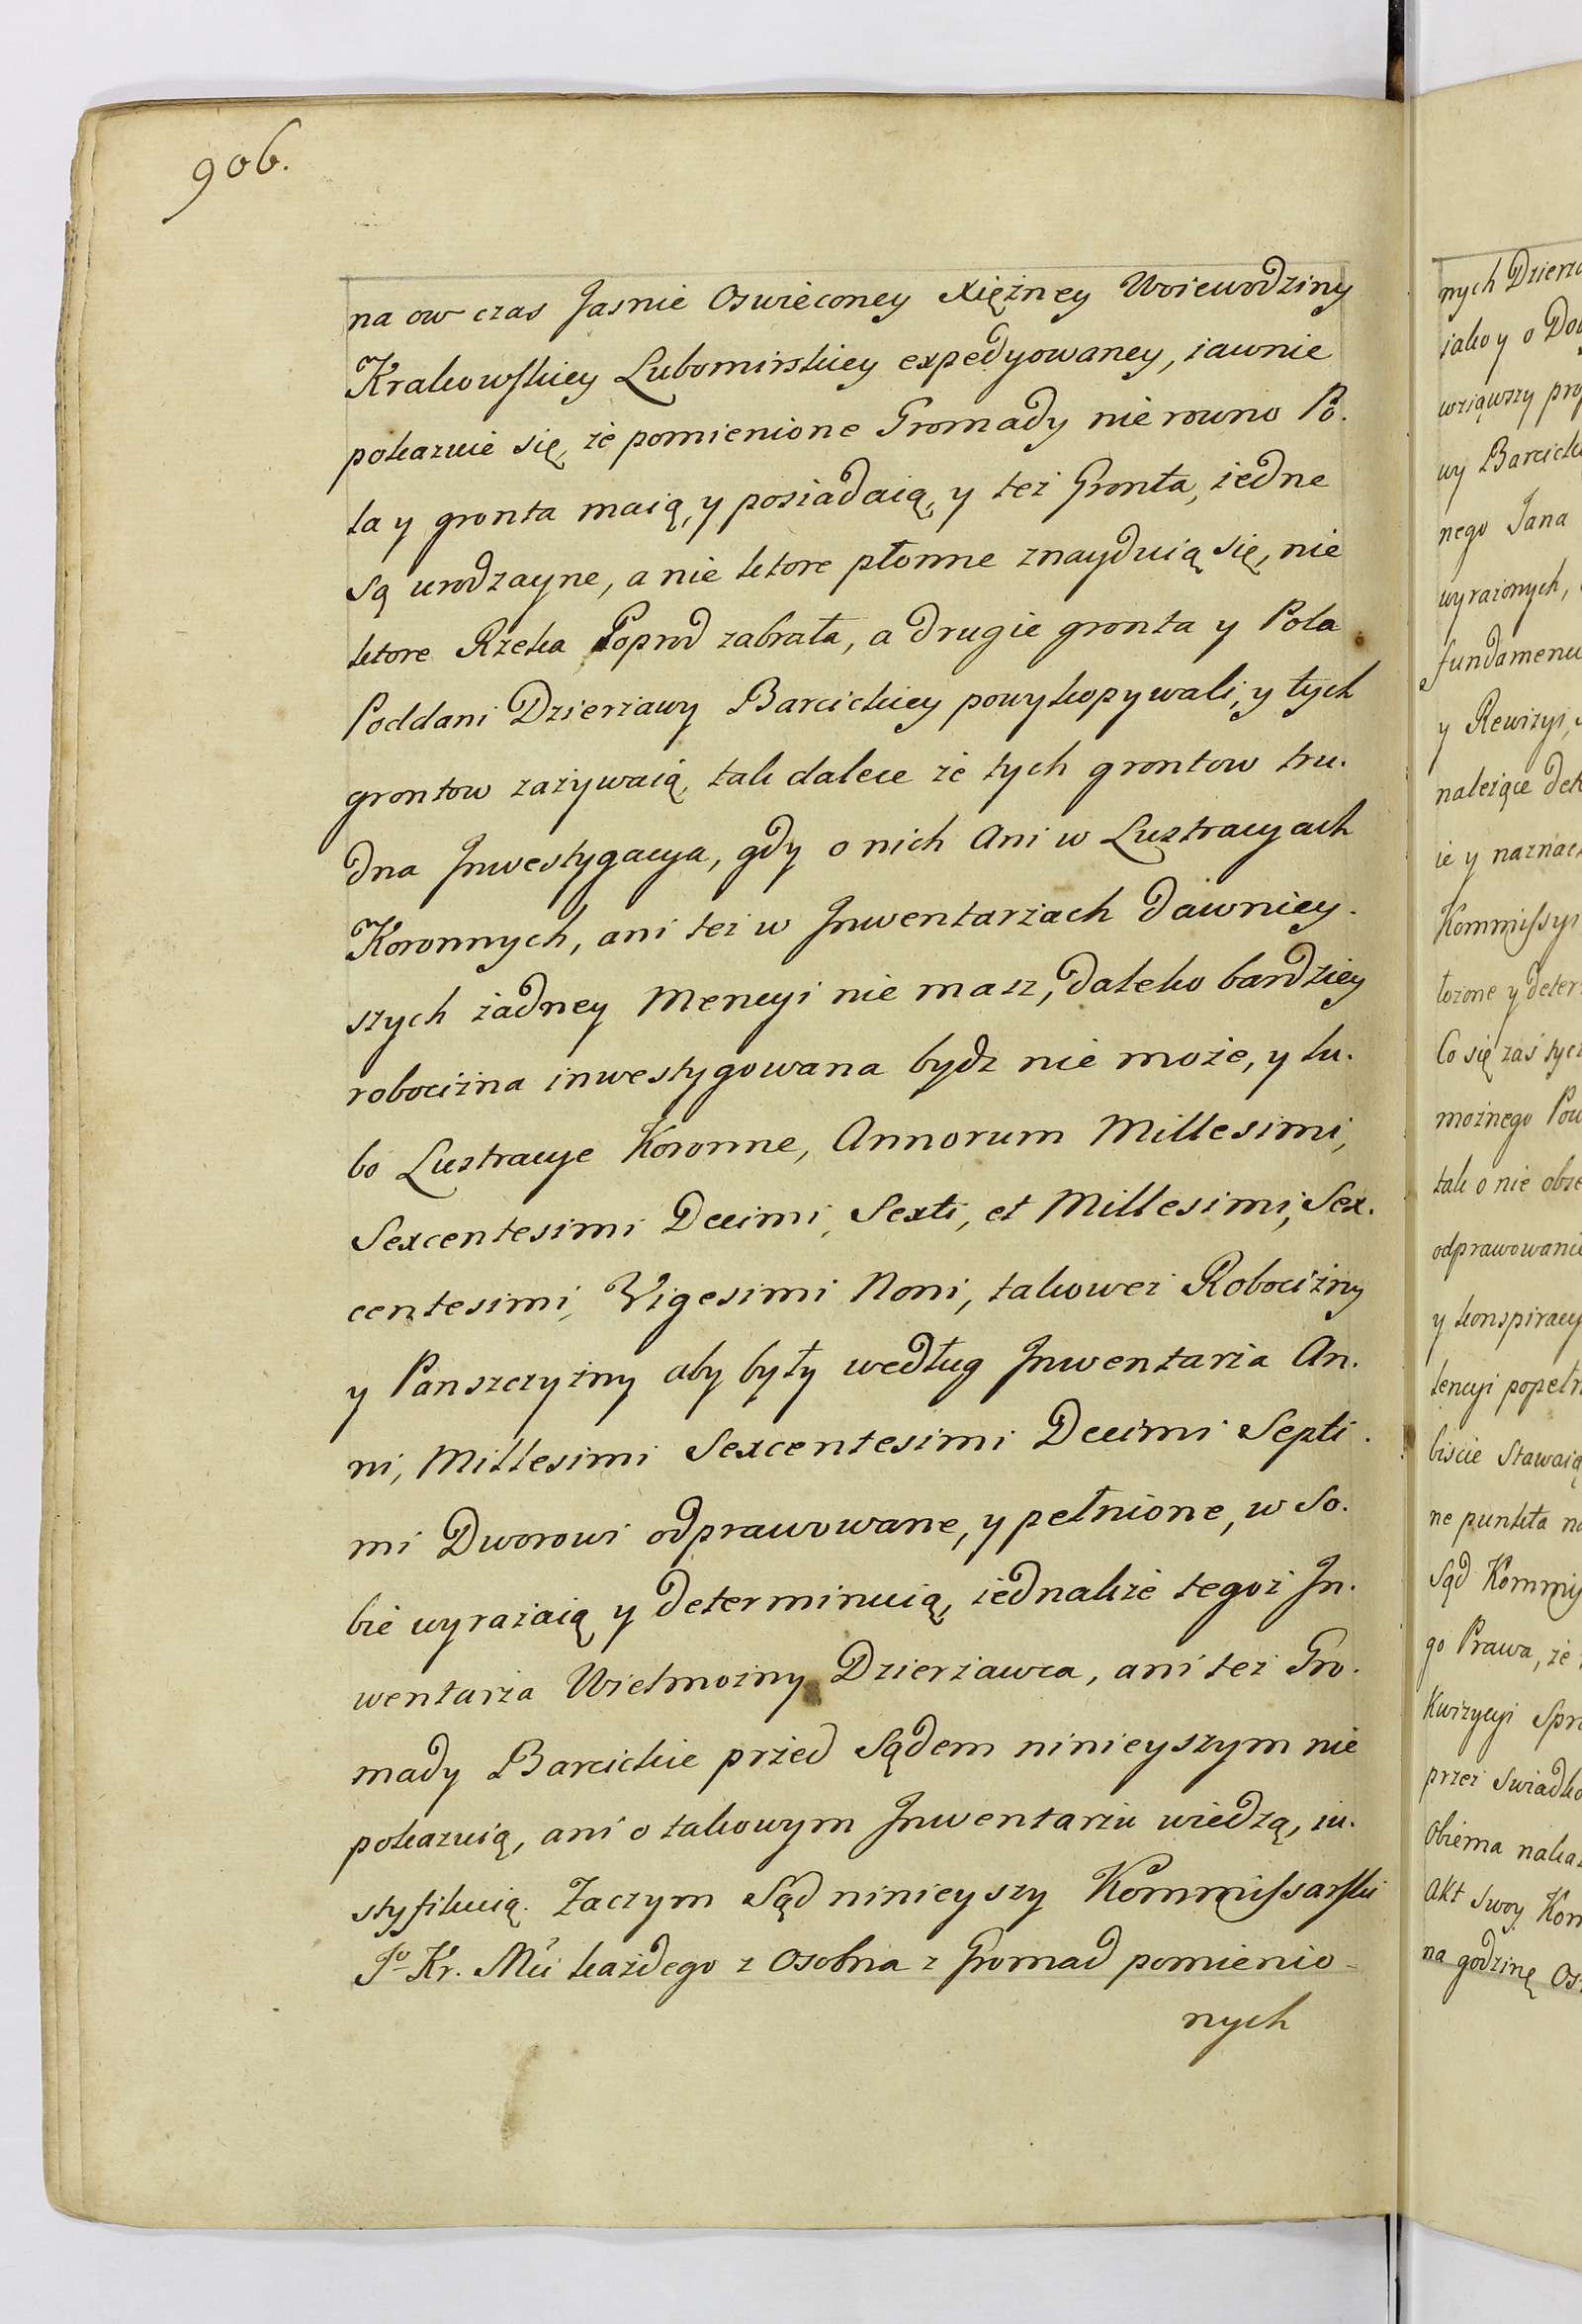 906.
na ow czas Jasnie Oswieconey Xiężney Woiewodziny
Krakowskiey Lubomirskiey expedyowaney, iawnie
pokazuie się, że pomienione Gromady nie rowno Po.
la y gronta maią, y posiadaią, y też Gronta, iedne
są urodzayne, a nie ktore płonne znayduią się, nie
ktore Rzeka Poprod zabrała, a drugie gronta y Pola
Poddani Dzierżawy Barcickiey powykopywali, y tych
grontow zażywaią, tak dalece że tych grontow tru.
dna Inwestygacya, gdy o nich Ani w Lustracyach
Koronnych, ani też w Inwentarżach dawniey.
szych żadney Mencyi nie masz, daleko bardziey
robocizna inwestygowana bydz nie może, y lu.
bo Lustracye Koronne, Annorum Millesimi,
Sexcentesimi Decimi, Sexti, et Millesimi, Sex.
centesimi, Vigesimi Noni, takoweż Robocizny
y Panszczyzny aby były według Inwentarża An.
ni, Millesimi Sexcentesimi Decimi Septi.
mi Dworowi odprawowane, y pełnione, w So.
bie wyrażaią y determinuią, iednakże tegoż In.
wentarża Wielmożny Dzierżawca, ani też Gro.
mady Barcickie przed Sądem ninieyszym nie
pokazuią, ani o takowym Inwentarżu wiedzą, iu.
styfikuią. Zaczym Sąd ninieyszy Kommissarski
Jo Kr. Mci każdego z Osobna z Gromad pomienio-
nych
nych Dzierż
iako y o Do
wziąwszy pro
wy Barcick
nego Jana
wyrażonych,
fundamenu
y Rewizyi,
należące det
ie y naznac
Kommissyi
łożone y deter
Co się zaś tycz
możnego Pow
tak o nie obsz
odprawowanie
y konspiracy
tencyi popełn
biscie Stawaią
ne punkta na
Sąd Kommis
go Prawa, że
Kwizycyi Spr
przez Swiadko
Obiema nakaz
Akt Swoy Kom
na godzinę Os